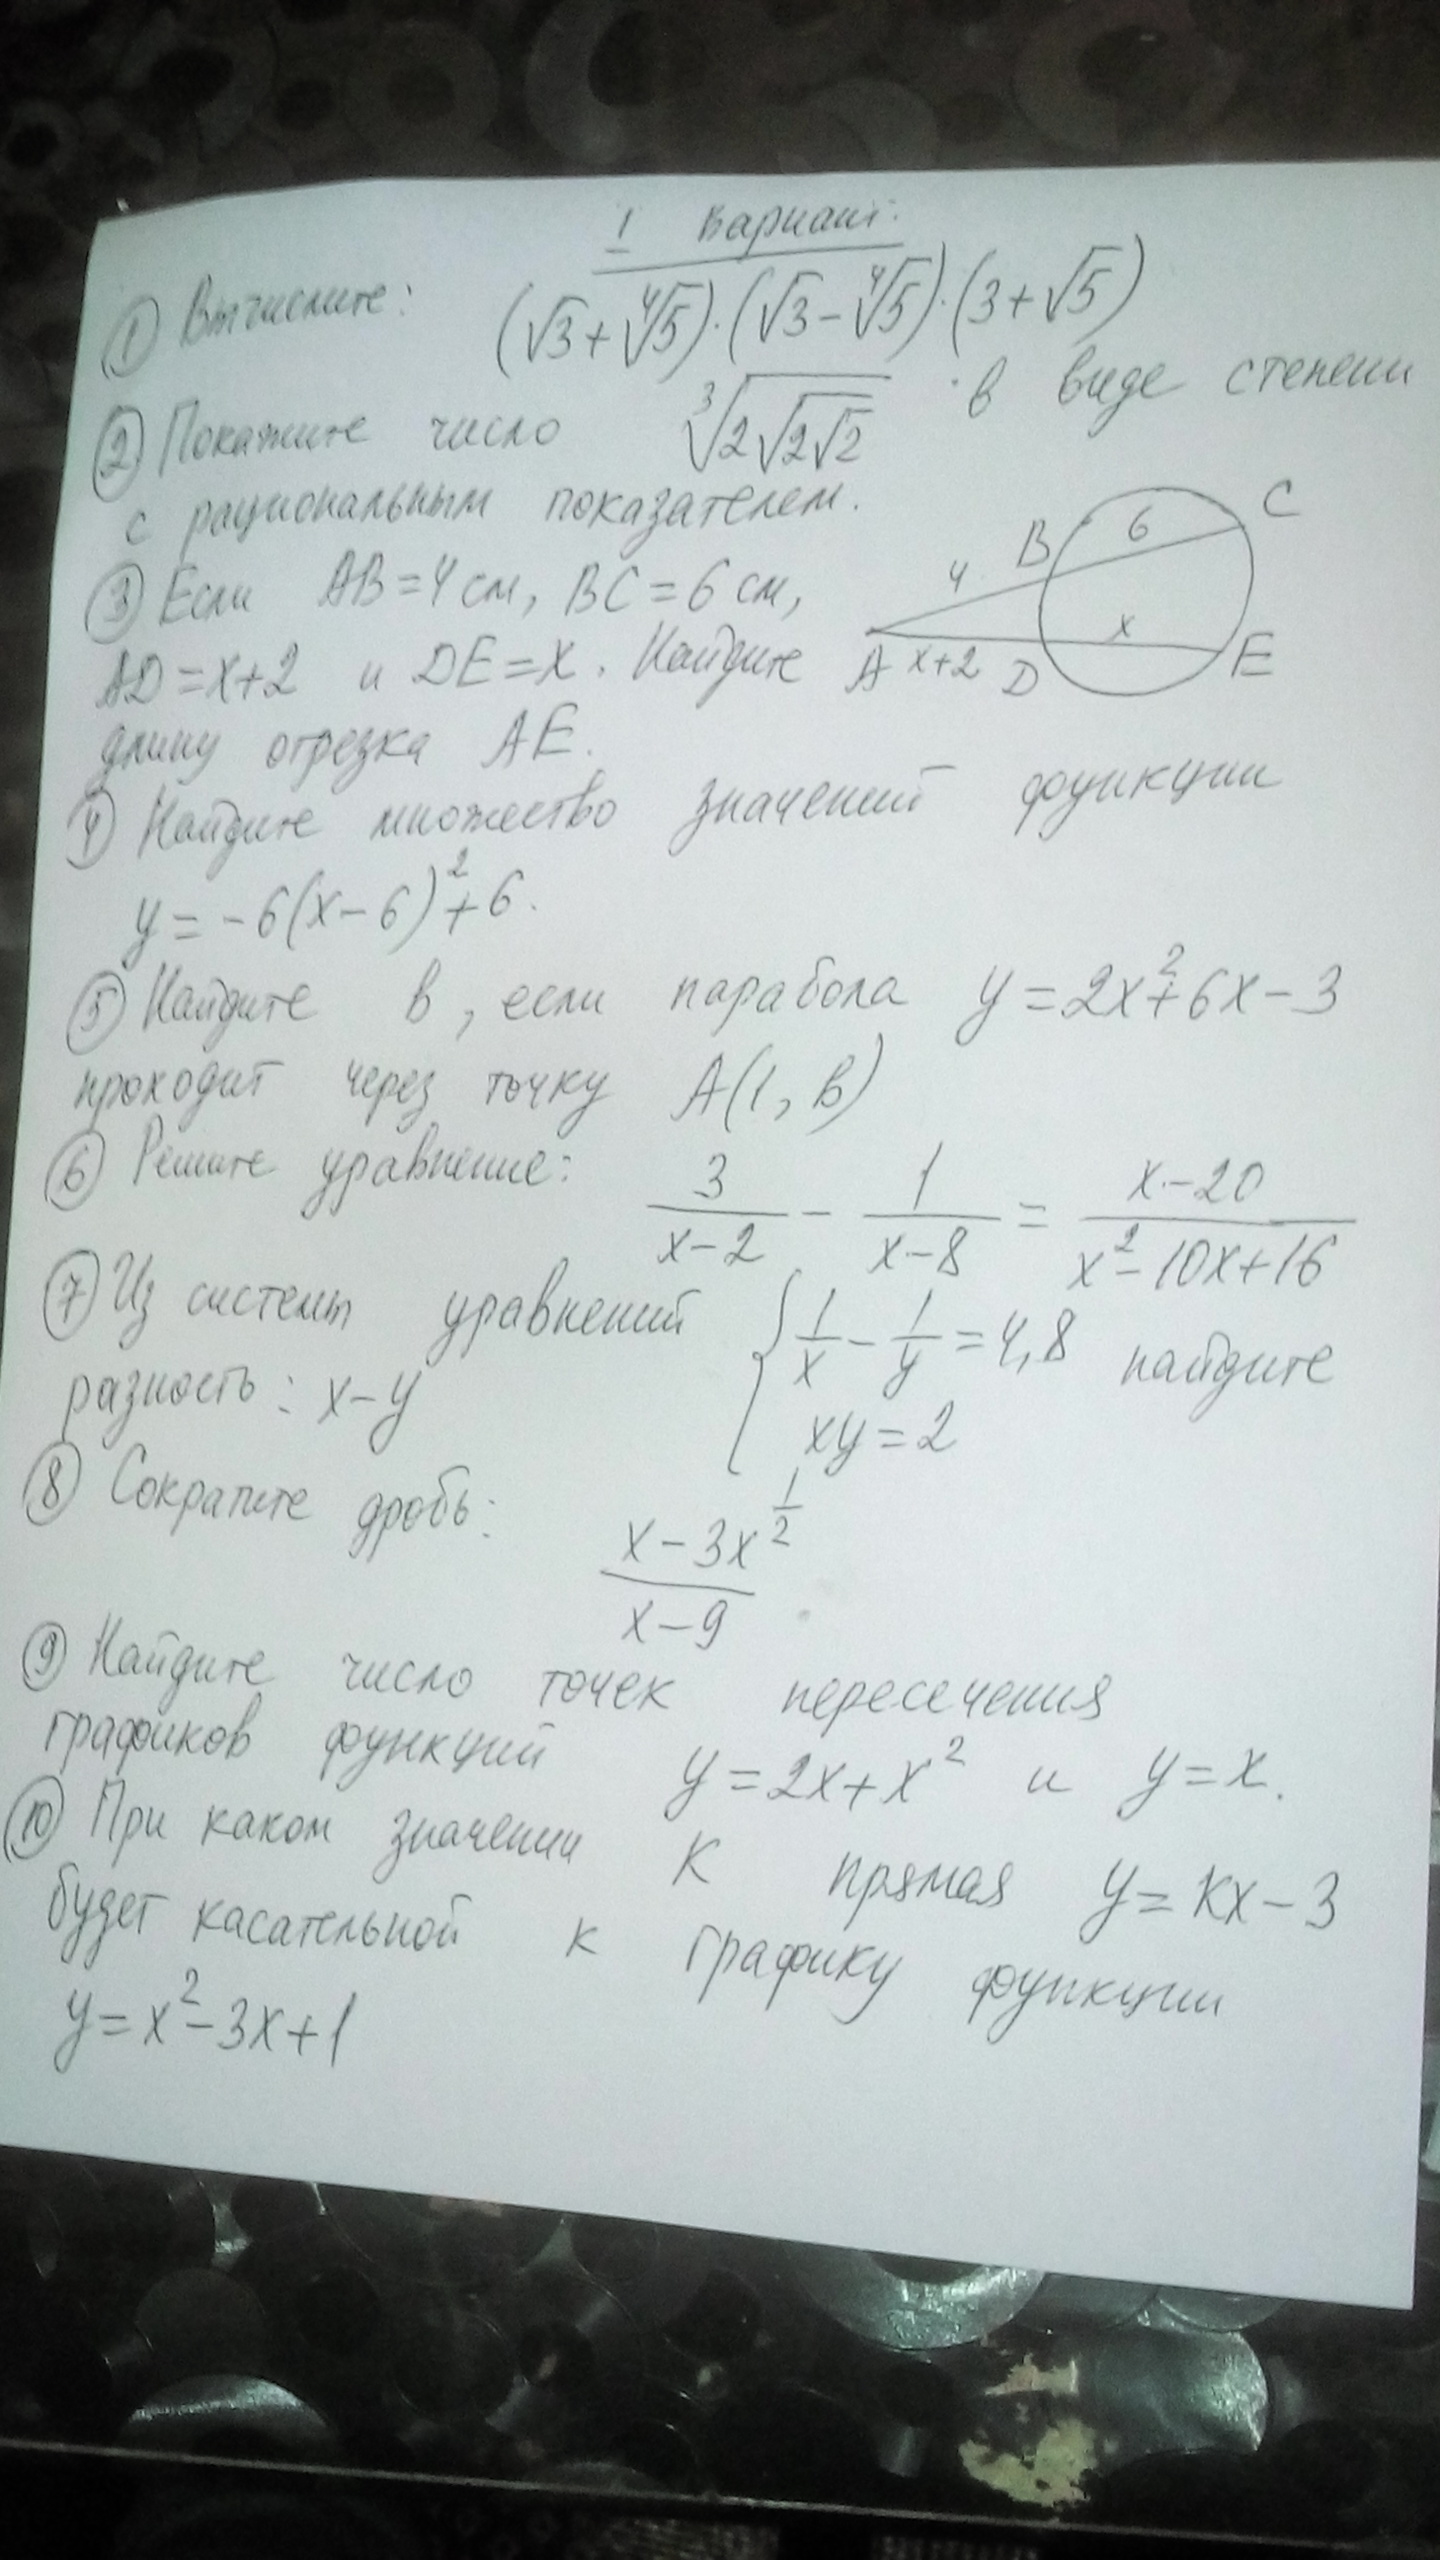 1 Вариант.
① Вычислите: (√3+∜5)·(√3−∜5)·(3+√5)
② Покажите число ∛(2√(2√2)) в виде степени
с рациональным показателем.
③ Если AB=4см, BC=6см,
AD=x+2 и DE=x. Найдите
длину отрезка AE.
B 6 C
4
x
A x+2 D E
④ Найдите множество значений функции
y=−6(x−6)²+6.
⑤ Найдите в, если парабола y=2x²+6x−3
проходит через точку A(1, в)
⑥ Решите уравнение: 3/(x−2) − 1/(x−8) = (x−20)/(x²−10x+16)
⑦ Из системы уравнений { 1/x − 1/y = 4,8 найдите
разность: x−y xy=2
⑧ Сократите дробь: (x−3x^(1/2))/(x−9)
⑨ Найдите число точек пересечения
графиков функций y=2x+x² и y=x.
⑩ При каком значении K прямая y=Kx−3
будет касательной к графику функции
y=x²−3x+1